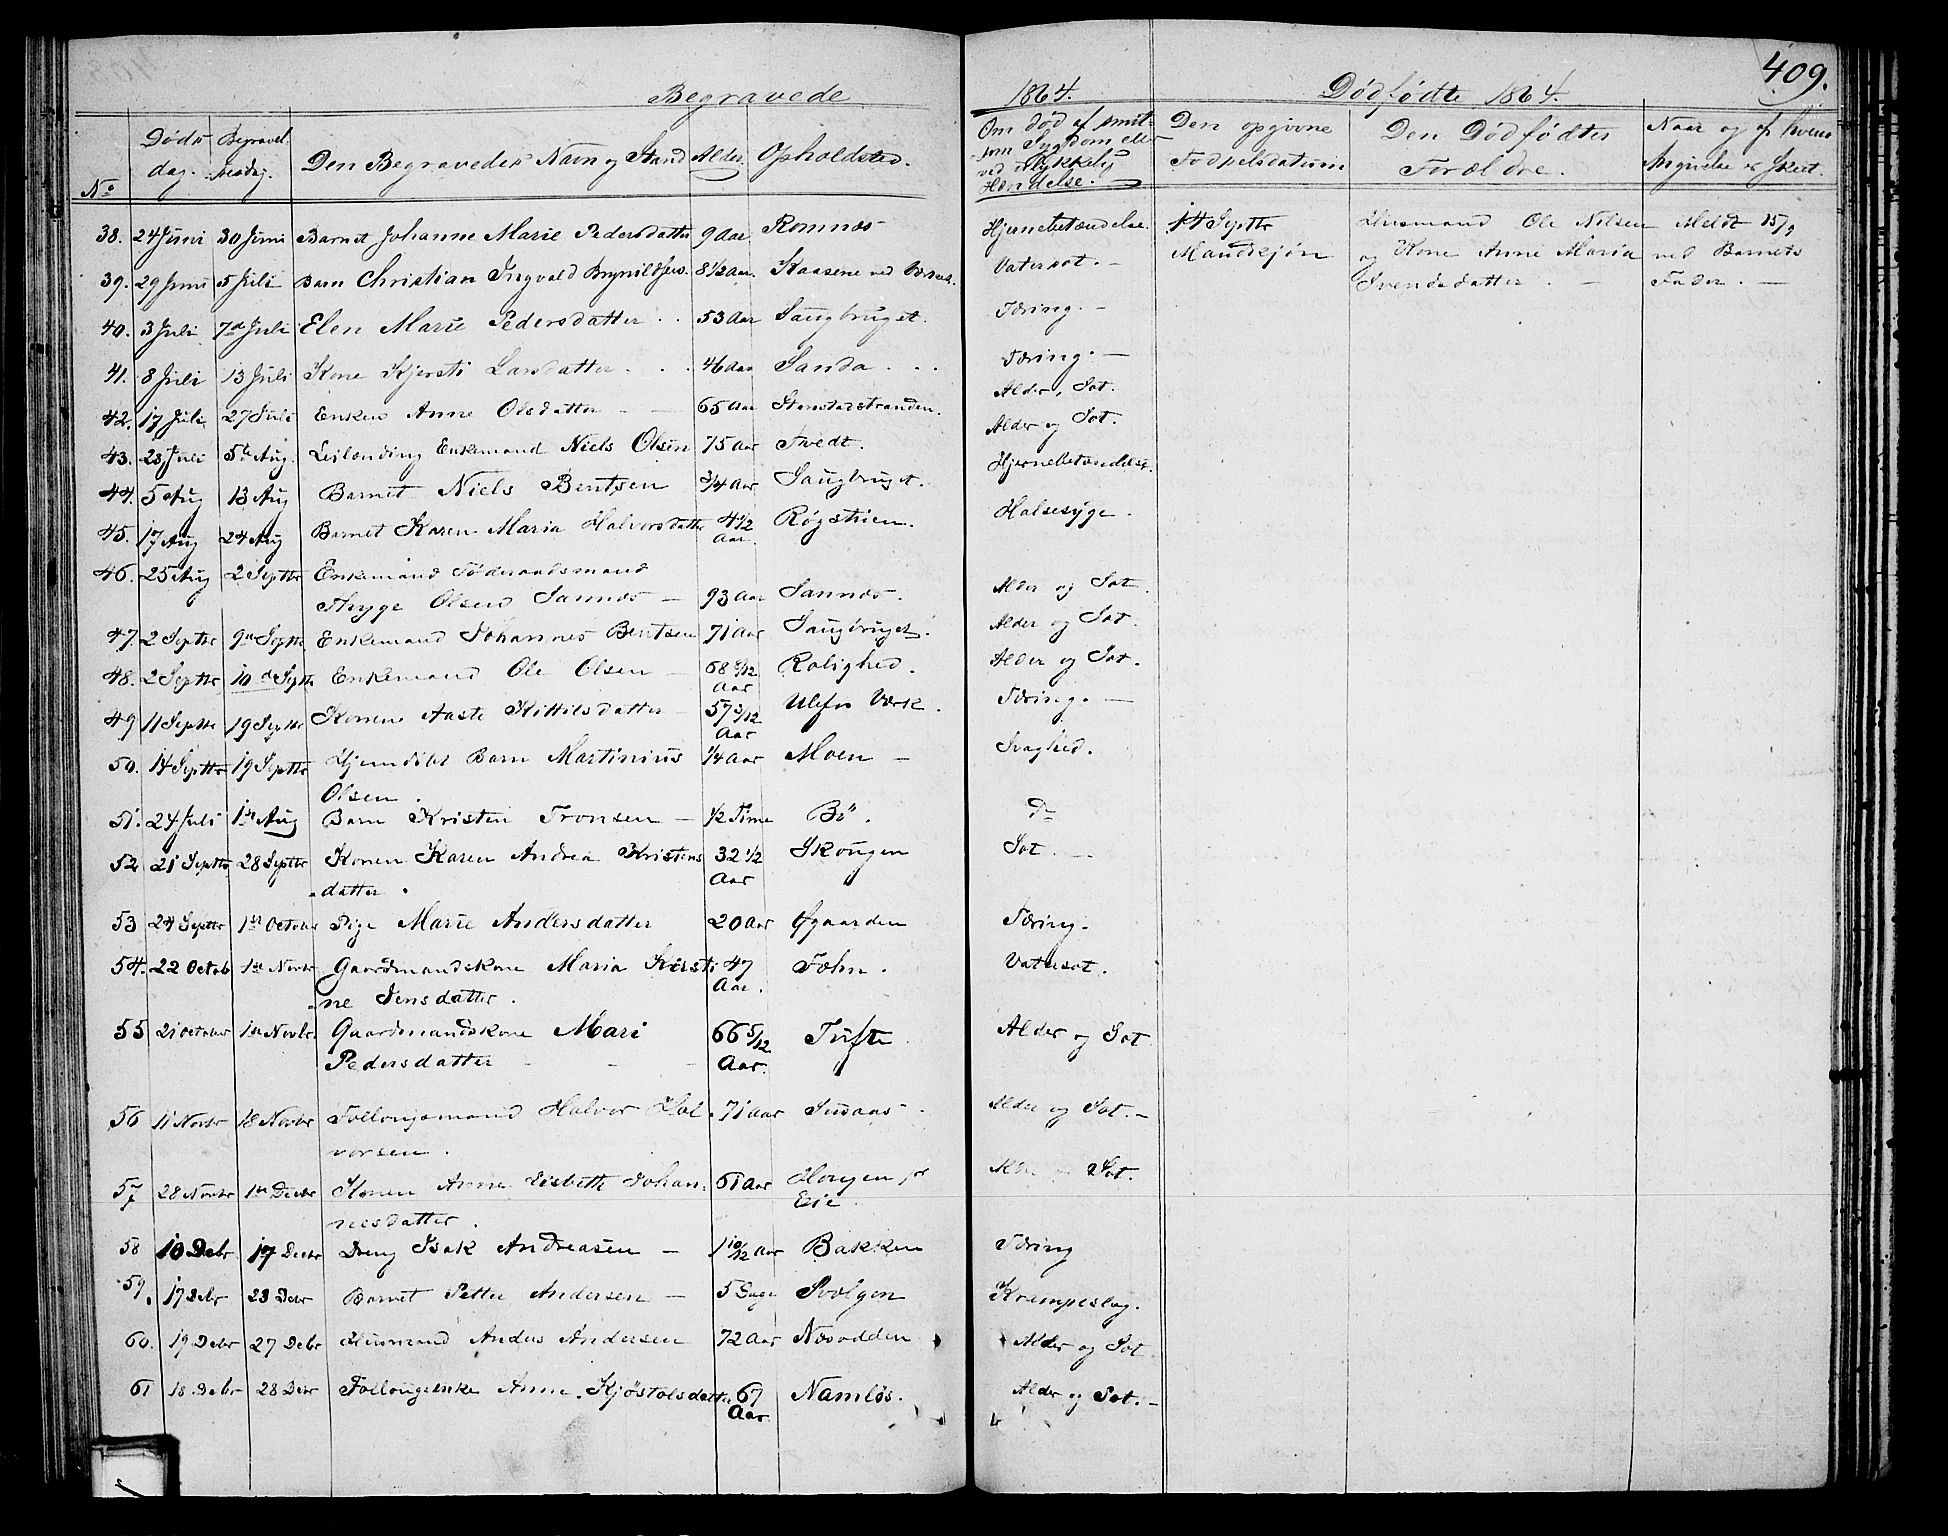 409.
Begravede 1864.
Dødfødte 1864.
No
Døds dag.
Begravelsesdag.
Den Begravedes Navn og Stand
Alder.
Opholdsted.
Om død af smitsom Sygdom eller ved ulykkelig Hændelse.
Den opgivne Fødselsdatum
Den Dødfødtes Forældre.
Naar og af hvem Angivelse er skeet.
38. 24 Juni 30 Juni Barnet Johanne Marie Pedersdatter 9 Aar Romnæs Hjernebetændelse.
39. 29 Juni 5 Juli Barn Christian Ingvald Brynildsen. 8 1/2 Aar. Kaasene ved Værket. Vatersot. —
40. 3 Juli 7de Juli Elen Marie Pedersdatter . . 53 Aar Saugbruget. Tæring. —
41. 8 Juli 13 Juli Kone Kjersti Larsdatter . . . 46 Aar Sanda . . . Tæring. —
42. 17 Juli 27 Juli Enken Anne Olsdatter — 65 Aar Stenstadstranden. Alder, Sot.
43. 28 Juli 5te Aug. Leilænding Enkemand Niels Olsen 75 Aar Tvedt. Alder og Sot.
44. 5 Aug 13 Aug Barnet Niels Bentsen 3/4 Aar Saugbruget. Hjernebetændelse.
45. 17 Aug 24 Aug Barnet Karen Maria Halvorsdatter 4 1/2 Aar. Røgstrien. Halsesyge.
46. 25 Aug 2 Septbr Enkemand Føderaadsmand
Thryge Olsen Sannæs — 93 Aar Sannæs. Alder og Sot.
47. 2 Septbr 9de Septbr Enkemand Johannes Bentsen 71 Aar Saugbruget. Alder og Sot.
48. 2 Septbr 10de Septbr Enkemand Ole Olsen — 68 8/12 Aar Rolighed. Alder og Sot.
49 11 Septbr 19 Septbr Konen Aaste Kittilsdatter — 57 3/12 Aar Ulefos Værk. Tæring. —
50. 14 Septbr 19 Septbr Hjemdøbt Barn Martinius 1/4 Aar Moen — Svaghed.
Olsen.
51. 24 Juli 1ste Aug Barn Kristen Tronsen — 1/2 Time Bö. Do
52 21 Septbr 28 Septbr Konen Karen Andrea Kristens 32 1/2 Aar Skougen Sot. —
datter.
53 24 Septbr 1ste October Pige Marie Andersdatter 20 Aar Øgaarden Tæring.
54. 22 Octob 1ste Novbr Gaardmandskone Maria Kirsti 47 Aar. Fæhn. Vatersot.
ne Jensdatter.
55 21 October 1ste Novbr. Gaardmandskone Mari 66 5/12 Aar. Tufte Alder og Sot
Pedersdatter — — —
56 11 Novbr 18 Novbr Follougsmand Halvor Hal 71 Aar Alder og Sot. —
vorsen.
57 28 Novbr 1ste Decbr Konen Anne Lisbeth Johan 61 Aar Eie. Sot.
nesdatter.
58 10 Debr 17 Decbr Dreng Isak Andreasen — 1 10/12 Aar Bakken Tæring
59. 17 Debr 23 Debr Barnet Petter Andersen — 5 Dage Svolgen Krampeslag.
60. 19 Debr 27 Debr Huusmand Anders Andersen 72 Aar Næsodden Alder og Sot.
61 18 Debr 28 Debr Follougsenke Anne Kjøstolsdatter 67 Aar. Namløs. Alder og Sot. —
14 Septbr Huusmand Ole Nilsen Meldt 15/9
Mandskjøn og Kone Anne Maria ved Barnets
Svendsdatter . — Fader. —